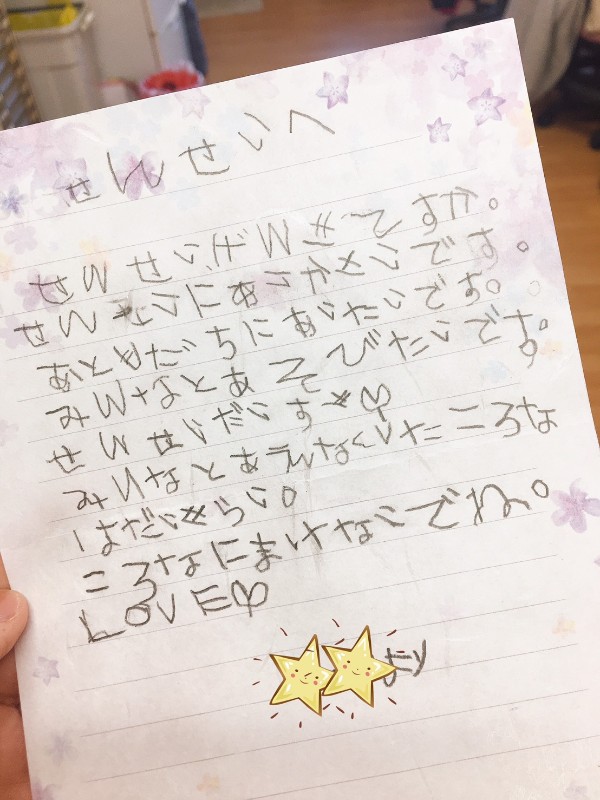 せんせいへ
せんせいげんきですか。
せんせいにあいたいです。
おともだちにあいたいです。
みんなとあそびたいです。
せんせいだいすき♡
みんなとあえなくしたころな
はだいきらい。
ころなにまけないでね。
LOVE♡
より